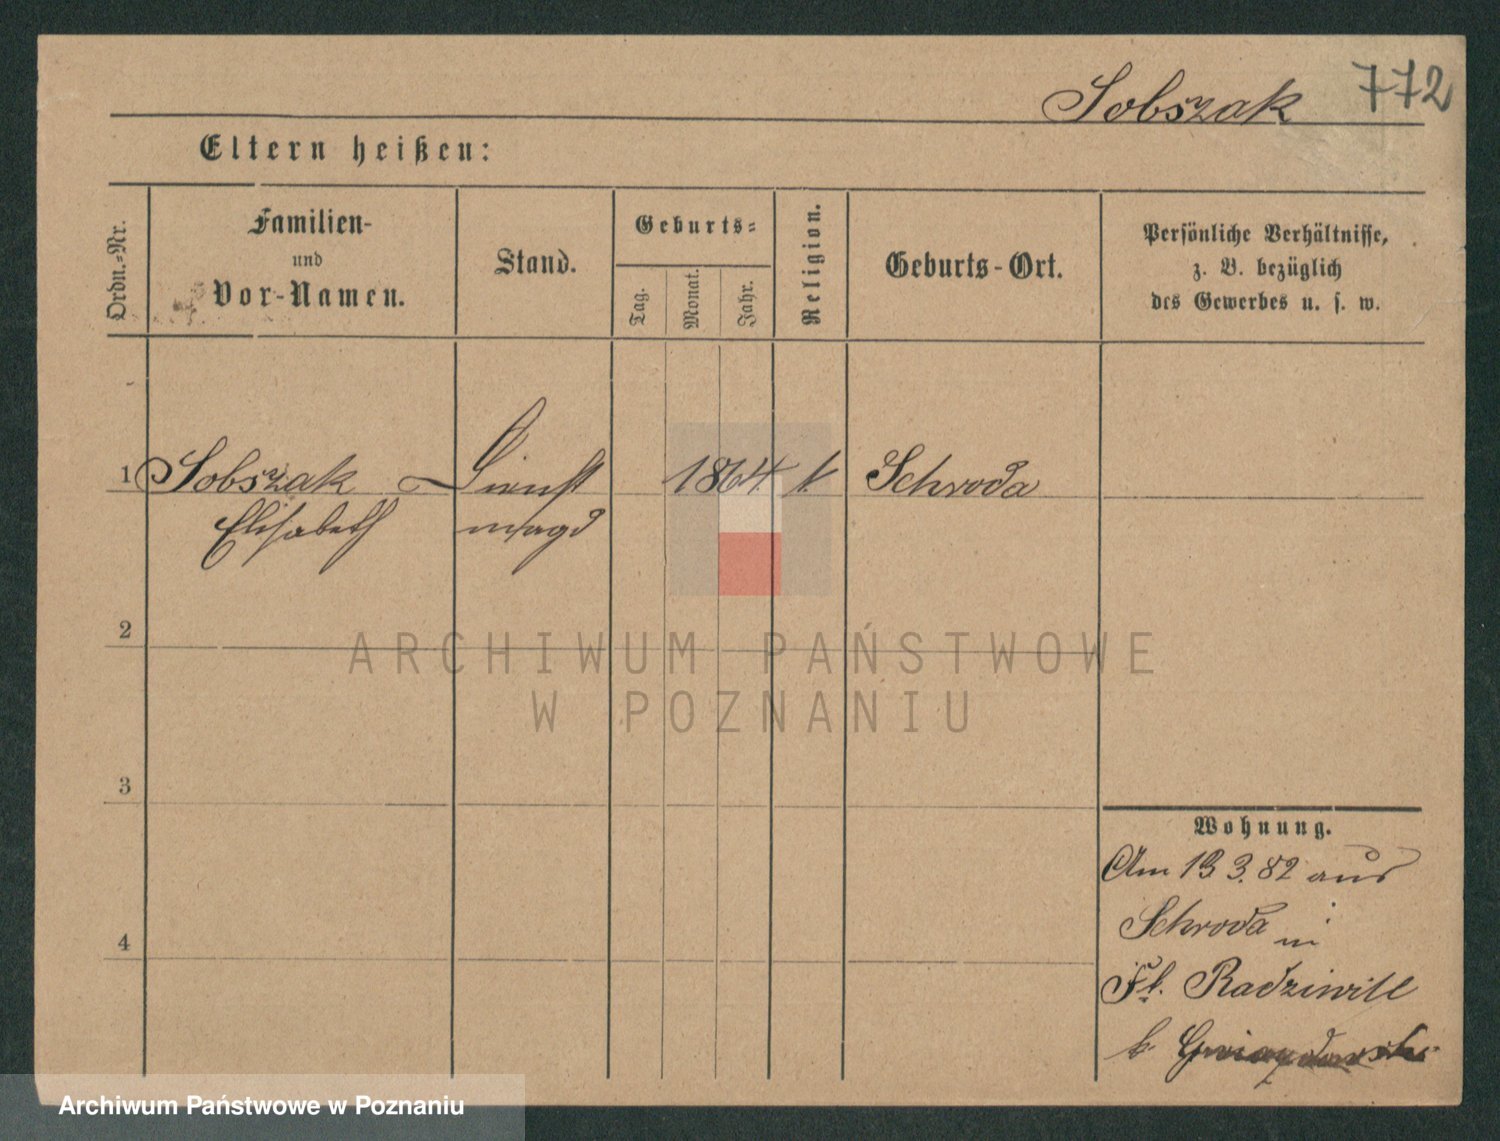 Sobszak 772
Eltern heißen:
Ordn.-Nr.
Familien-
und
Vor-Namen.
Stand.
Geburts-
Tag.
Monat.
Jahr.
Religion.
Geburts-Ort.
Persönliche Verhältnisse,
z. B. bezüglich
des Gewerbes u. s. w.
1 Sobszak Dienst 1864. k. Schroda
Elisabeth magd
2
ARCHIWUM PAŃSTWOWE
W POZNANIU
3
Wohnung.
Am 13 3. 82 aus
Schroda in
4
Fl. Radziwill
b. Gwiazdowski
Archiwum Państwowe w Poznaniu